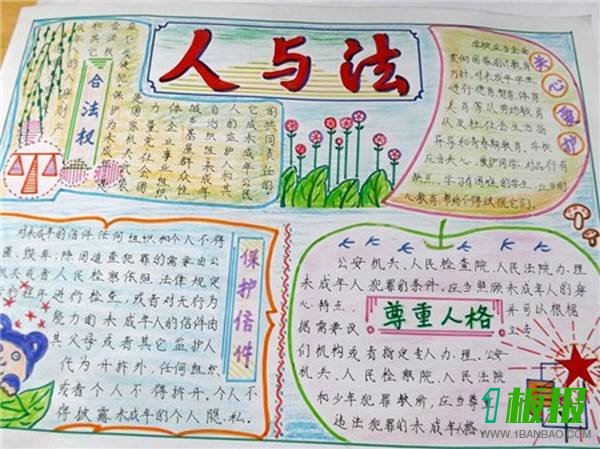 人与法
合法权
关心爱护
学校应当全面
贯彻国家的教育
方针,对未成年学生
进行德育、智育、体育
美育、劳动教育
以及社会生活
导和青春期教育,学校
应当关心、爱护同学,对品行有
缺点、学习有困难的学生,应当耐
心教育、帮助不得歧视它们。
的共同责任的
人的监护人和其
它成年未成年公民
自治组织未成年
城乡基层群众性
体企业事业组织
力量党社会团
是国家机关武装
保护未成年人
对未成年人的信件任何组织和个人不得
匿、毁弃,除因追查犯罪的需要由公
机关或者人民检察依照法律规定
行程序进行检查,或者对无行为
能力的未成年人的信件由
其父母或者其它监护人
代为开拆外,任何组织
或者个人不得拆开,个人不
得披露未成年的个人隐私。
保护信件
公安机关、人民检查院、人民法院办理
未成年人犯罪的条件,应当照顾未成年人的身
心特点,并可以根据
据需要设立
尊重人格
们机构或者指定专人办理。公安
机关、人民检察院、人民法院
和少年犯罪教所,应当尊
违法犯罪的未成年人格
1板报
WWW.1BANBAO.COM